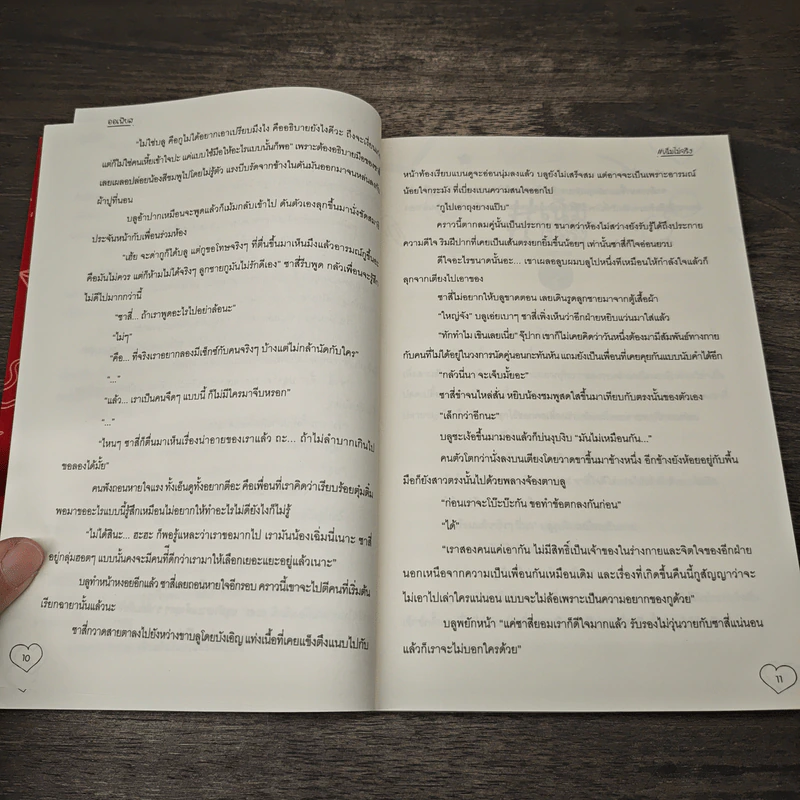 ออเนียล
"ไม่ใช่บลู คือกูไม่ได้อยากเอาเปรียบมึงไง คืออธิบายยังไงดีวะ ถึงจะเงี่ยน
แต่ก็ไม่ใช่คนเหี้ยเข้าใจปะ แค่แบบใช้มือให้อะไรแบบนั้นก็พอ" เพราะต้องอธิบายมือของซาสี่
เลยเผลอปล่อยน้องสีชมพูไปโดยไม่รู้ตัว แรงบีบรัดจากข้างในดันมันออกมาจนหล่นลงกับ
ผ้าปูที่นอน
บลูอ้าปากเหมือนจะพูดแล้วก็เม้มกลับเข้าไป ดันตัวเองลุกขึ้นมานั่งขัดสมาธิ
ประจันหน้ากับเพื่อนร่วมห้อง
"เฮ้ย จะด่ากูก็ได้บลู แต่กูขอโทษจริงๆ ที่ตื่นขึ้นมาเห็นมึงแล้วอารมณ์กูขึ้นอะ
คือมันไม่ควร แต่ก็ห้ามไม่ได้จริงๆ ลูกชายกูมันไม่รักดีเอง" ซาสี่รีบพูด กลัวเพื่อนจะรู้สึก
ไม่ดีไปมากกว่านี้
"ซาสี่... ถ้าเราพูดอะไรไปอย่าล้อนะ"
"ไม่ๆ"
"คือ... ที่จริงเราอยากลองมีเซ็กซ์กับคนจริงๆ บ้างแต่ไม่กล้านัดกับใคร"
"..."
"แล้ว... เราเป็นคนจืดๆ แบบนี้ ก็ไม่มีใครมาจีบหรอก"
"..."
"ไหนๆ ซาสี่ก็ตื่นมาเห็นเรื่องน่าอายของเราแล้ว ถะ... ถ้าไม่ลำบากเกินไป
ขอลองได้มั้ย"
คนฟังถอนหายใจแรง ทั้งเอ็นดูทั้งอยากตีอะ คือเพื่อนที่เราคิดว่าเรียบร้อยตุ๋มติ๋ม
พอมาขออะไรแบบนี้รู้สึกเหมือนไม่อยากให้ทำอะไรไม่ดียังไงก็ไม่รู้
"ไม่ได้สินะ... ฮะฮะ ก็พอรู้แหละว่าเราขอมากไป เรามันน้องเฉิ่มนี่เนาะ ซาสี่
อยู่กลุ่มฮอตๆ แบบนั้นคงจะมีคนที่ดีกว่าเรามาให้เลือกเยอะแยะอยู่แล้วเนาะ"
บลูทำหน้าหงอยอีกแล้ว ซาสี่เลยถอนหายใจอีกรอบ คราวนี้เขาจะไปตีคนที่เริ่มต้น
เรียกฉายานั้นแล้วนะ
ซาสี่กวาดสายตาลงไปยังหว่างขาบลูโดยบังเอิญ แท่งเนื้อที่เคยแข็งตึงแนบไปกับ
10
#เฉิ่มไม่จริง
หน้าท้องเรียบแบนดูจะอ่อนนุ่มลงแล้ว บลูยังไม่เสร็จสม แต่อาจจะเป็นเพราะอารมณ์
น้อยใจกระมัง ที่เบี่ยงเบนความสนใจออกไป
"กูไปเอาถุงยางแป๊บ"
คราวนี้ตากลมคู่นั้นเป็นประกาย ขนาดว่าห้องไม่สว่างยังรับรู้ได้ถึงประกาย
ความดีใจ ริมฝีปากที่เคยเป็นเส้นตรงยกยิ้มขึ้นน้อยๆ เท่านั้นซาสี่ก็ใจอ่อนยวบ
ดีใจอะไรขนาดนั้นอะ... เขาเผลอลูบผมบลูไปหนึ่งทีเหมือนให้กำลังใจแล้วก็
ลุกจากเตียงไปเอาของ
ซาสี่ไม่อยากให้บลูขาดตอน เลยเดินรูดลูกชายมาจากตู้เสื้อผ้า
"ใหญ่จัง" บลูเอ่ยเบาๆ ซาสี่เพิ่งเห็นว่าอีกฝ่ายหยิบแว่นมาใส่แล้ว
"ทักทำไม เขินเลยเนี่ย" จุ๊ปาก เขาก็ไม่เคยคิดว่าวันหนึ่งต้องมามีสัมพันธ์ทางกาย
กับคนที่ไม่ได้อยู่ในวงการนัดคู่นอนกะทันหัน แถมยังเป็นเพื่อนที่เคยคุยกันแบบนับคำได้อีก
"กลัวนี่นา จะเจ็บมั้ยอะ"
ซาสี่ขำจนไหล่สั่น หยิบน้องชมพูสดใสขึ้นมาเทียบกับตรงนั้นของตัวเอง
"เล็กกว่าอีกนะ"
บลูชะเง้อขึ้นมามองแล้วก็บ่นงุบงิบ "มันไม่เหมือนกัน..."
คนตัวโตกว่านั่งลงบนเตียงโดยวาดขาขึ้นมาข้างหนึ่ง อีกข้างยังห้อยอยู่กับพื้น
มือก็ยังสาวตรงนั้นไปด้วยพลางจ้องตาบลู
"ก่อนเราจะโป๊ะป๊ะกัน ขอทำข้อตกลงกันก่อน"
"ได้"
"เราสองคนแค่เอากัน ไม่มีสิทธิ์เป็นเจ้าของในร่างกายและจิตใจของอีกฝ่าย
นอกเหนือจากความเป็นเพื่อนกันเหมือนเดิม และเรื่องที่เกิดขึ้นคืนนี้กูสัญญาว่าจะ
ไม่เอาไปเล่าใครแน่นอน แบบจะไม่ล้อเพราะเป็นความอยากของกูด้วย"
บลูพยักหน้า "แค่ซาสี่ยอมเราก็ดีใจมากแล้ว รับรองไม่วุ่นวายกับซาสี่แน่นอน
แล้วก็เราจะไม่บอกใครด้วย"
11